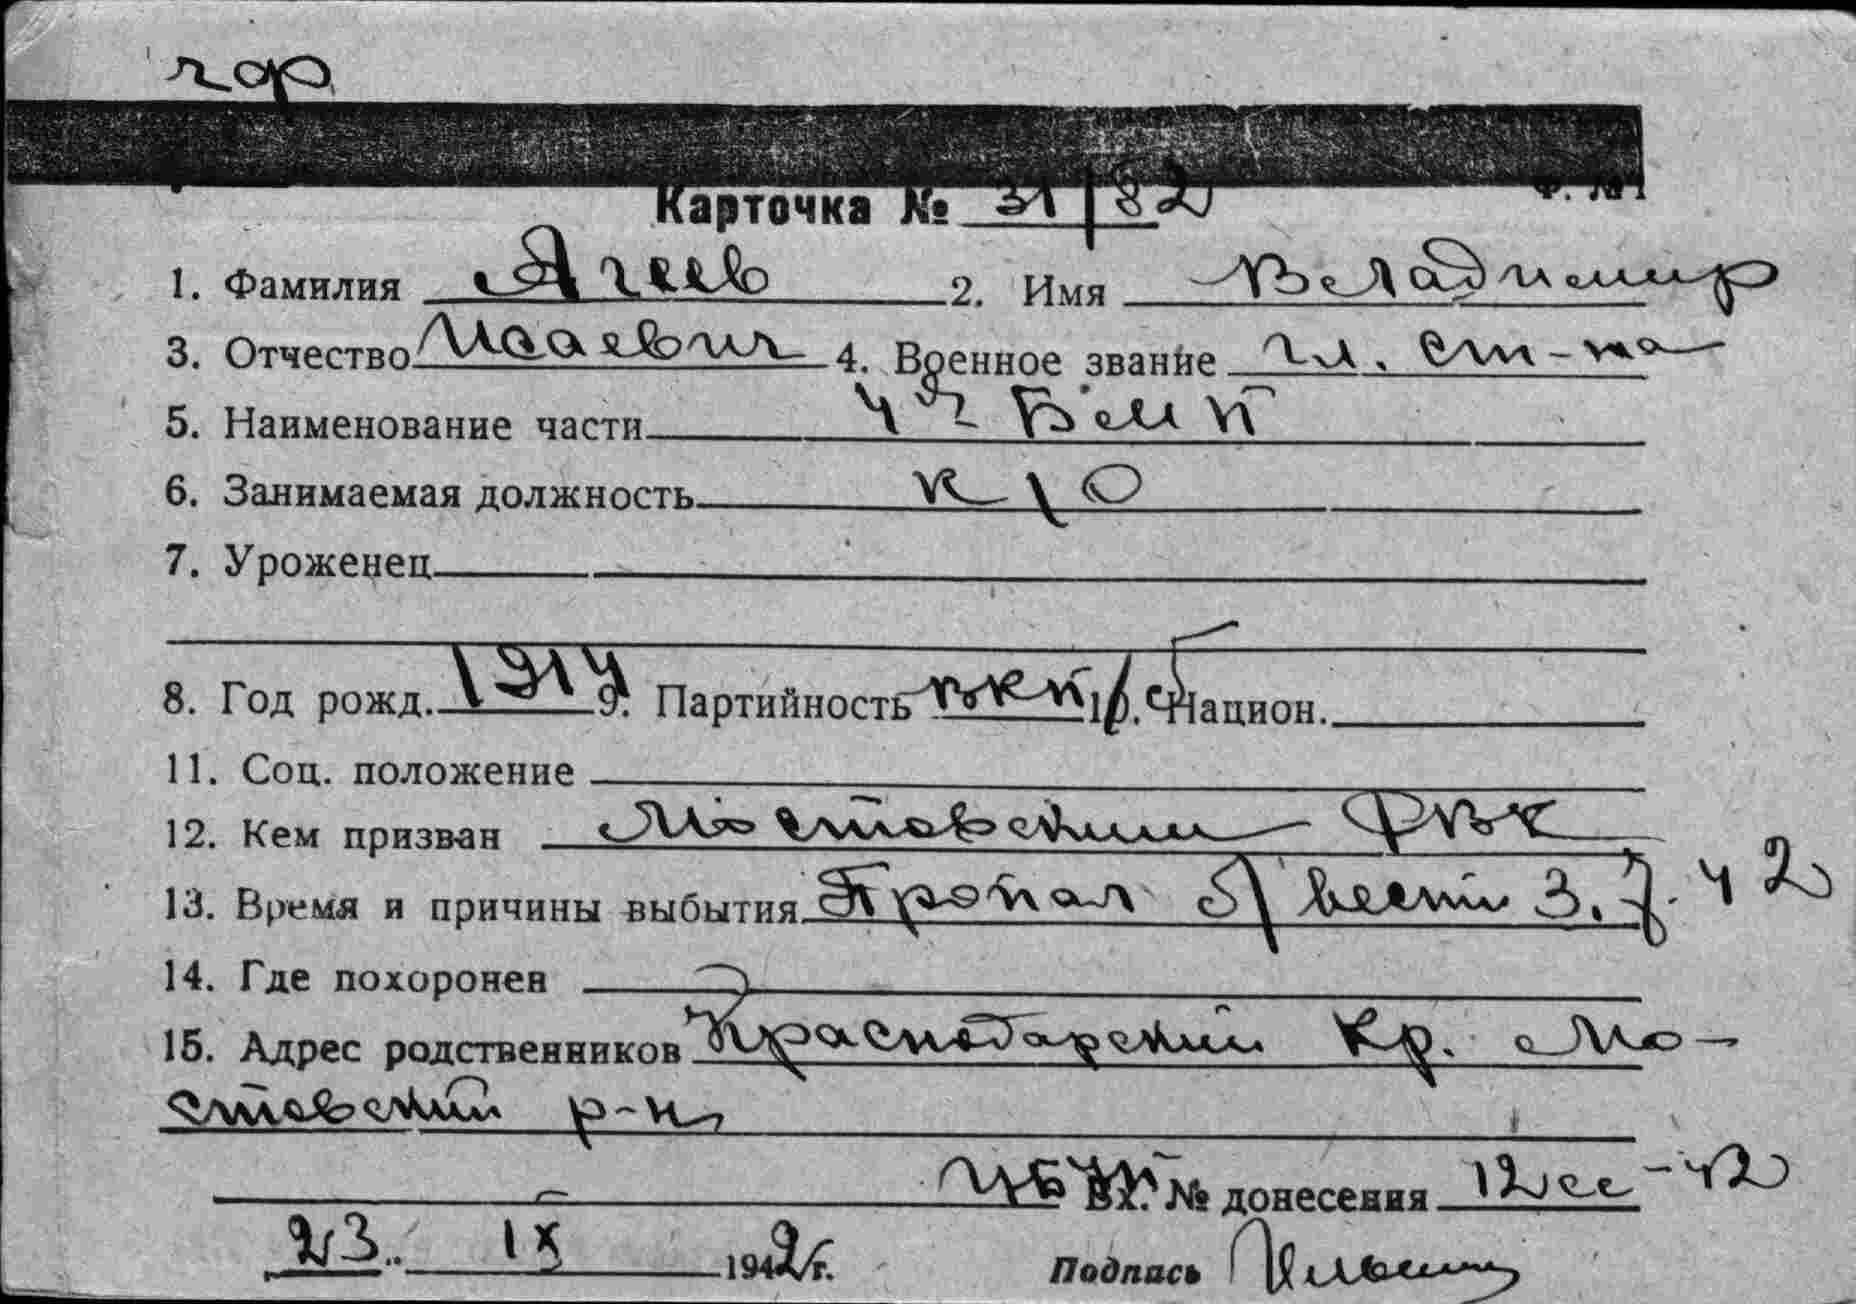 чф
Карточка № 31/82
1. Фамилия Агеев 2. Имя Владимир
3. Отчество Исаевич 4. Военное звание гл. ст-на
5. Наименование части 4й БМП
6. Занимаемая должность к/о
7. Уроженец
8. Год рожд. 1914 9. Партийность ВКП/б 10. Национ.
11. Соц. положение
12. Кем призван Мостовским РВК
13. Время и причины выбытия Пропал б/вести 3.7.42
14. Где похоронен
15. Адрес родственников Краснодарский кр. Мо-
стовский р-н
Вх. № донесения 12сс-42
23. IX 1942 г. Подпись